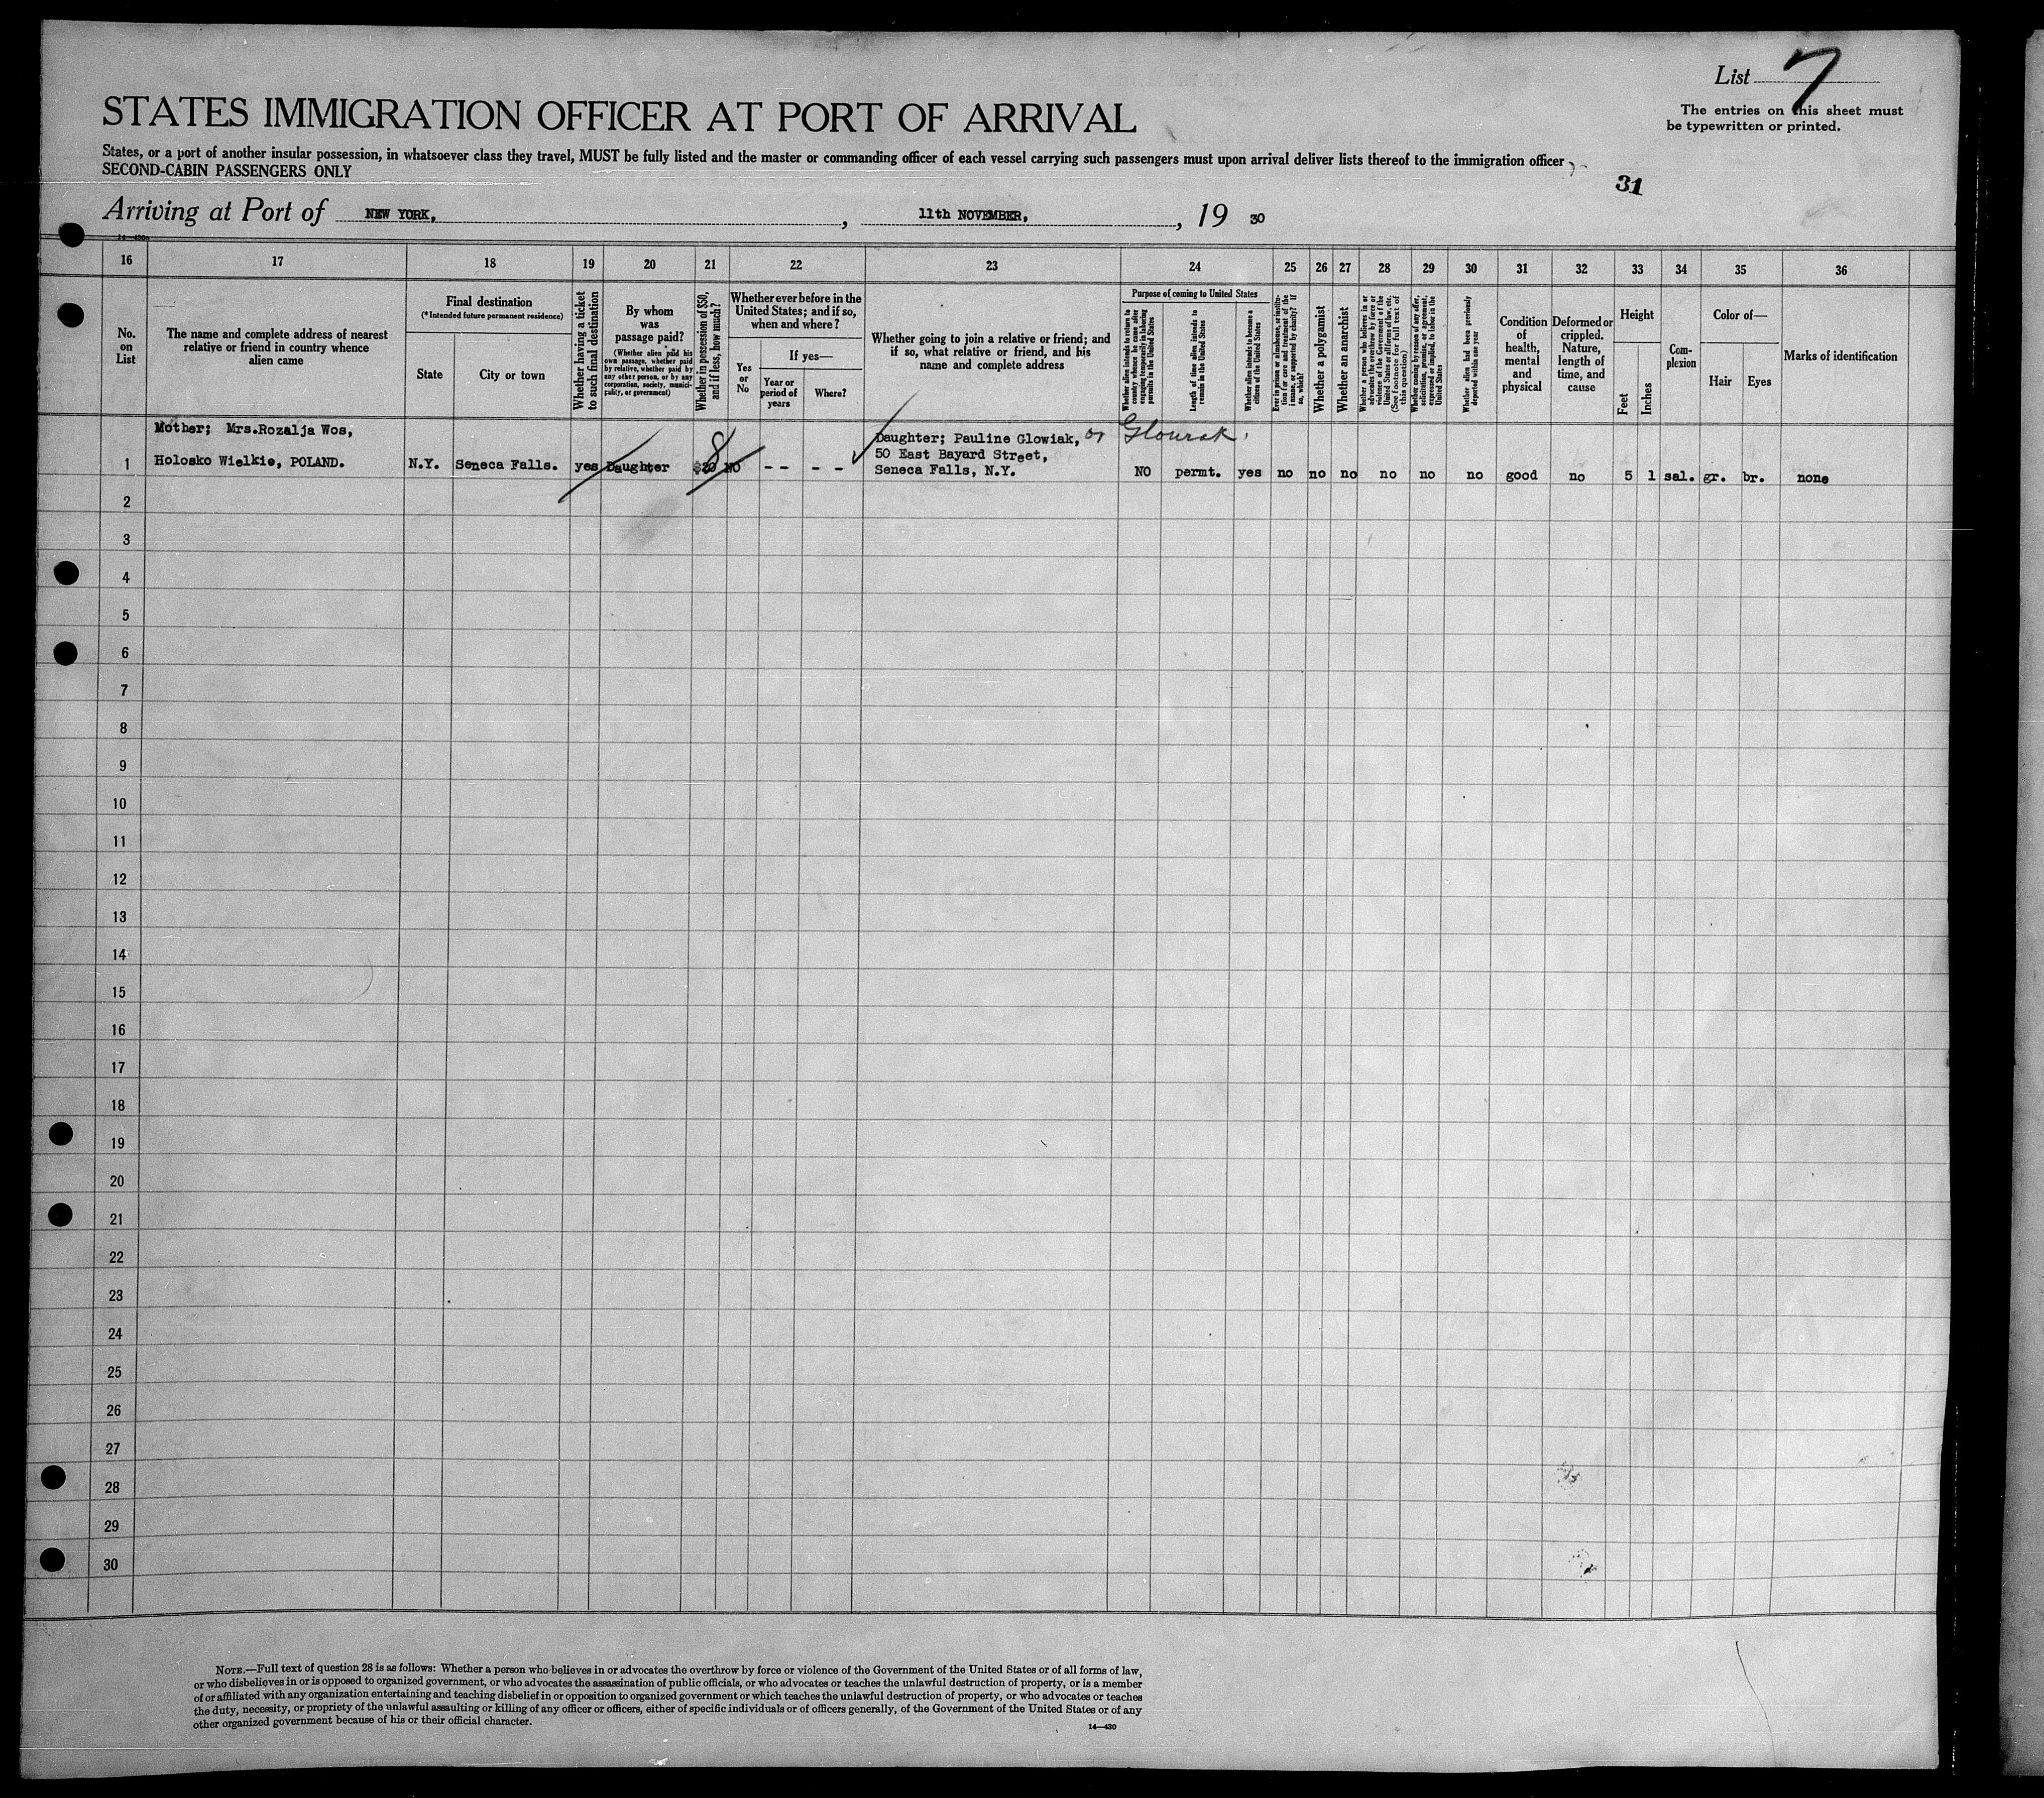 List 7
The entries on this sheet must
be typewritten or printed.
STATES IMMIGRATION OFFICER AT PORT OF ARRIVAL
States, or a port of another insular possession, in whatsoever class they travel, MUST be fully listed and the master or commanding officer of each vessel carrying such passengers must upon arrival deliver lists thereof to the immigration officer
SECOND-CABIN PASSENGERS ONLY
31
Arriving at Port of NEW YORK, , 11th NOVEMBER, , 19 30
14—430
16 17 18 19 20 21 22 23 24 25 26 27 28 29 30 31 32 33 34 35 36
No.
on
List
The name and complete address of nearest
relative or friend in country whence
alien came
Final destination
(*Intended future permanent residence)
State
City or town
Whether having a ticket
to such final destination
By whom
was
passage paid?
(Whether alien paid his
own passage, whether paid
by relative, whether paid by
any other person, or by any
corporation, society, munici-
pality, or government)
Whether in possession of $50,
and if less, how much?
Whether ever before in the
United States; and if so,
when and where?
Yes
or
No
If yes—
Year or
period of
years
Where?
Whether going to join a relative or friend; and
if so, what relative or friend, and his
name and complete address
Purpose of coming to United States
Whether alien intends to return to
country whence he came after
engaging temporarily in laboring
pursuits in the United States
Length of time alien intends to
remain in the United States
Whether alien intends to become a
citizen of the United States
Ever in prison or almshouse, or institu-
tion for care and treatment of the
insane, or supported by charity? If
so, which?
Whether a polygamist
Whether an anarchist
Whether a person who believes in or
advocates the overthrow by force or
violence of the Government of the
United States or all forms of law, etc.
(See footnote for full text of
this question)
Whether coming by reason of any offer,
solicitation, promise, or agreement,
expressed or implied, to labor in the
United States
Whether alien had been previously
deported within one year
Condition
of
health,
mental
and
physical
Deformed or
crippled.
Nature,
length of
time, and
cause
Height
Feet
Inches
Com-
plexion
Color of—
Hair
Eyes
Marks of identification
Mother; Mrs.Rozalja Wos,
Daughter; Pauline Glowiak, or Glowrak
50 East Bayard Street,
1 Holosko Wielkie, POLAND. N.Y. Seneca Falls. yes Daughter $20 8 NO -- -- Seneca Falls, N.Y. NO permt. yes no no no no no no good no 5 1 sal. gr. br. none
2
3
4
5
6
7
8
9
10
11
12
13
14
15
16
17
18
19
20
21
22
23
24
25
26
27
28
29
30
NOTE.—Full text of question 28 is as follows: Whether a person who believes in or advocates the overthrow by force or violence of the Government of the United States or of all forms of law,
or who disbelieves in or is opposed to organized government, or who advocates the assassination of public officials, or who advocates or teaches the unlawful destruction of property, or is a member
of or affiliated with any organization entertaining and teaching disbelief in or opposition to organized government or which teaches the unlawful destruction of property, or who advocates or teaches
the duty, necessity, or propriety of the unlawful assaulting or killing of any officer or officers, either of specific individuals or of officers generally, of the Government of the United States or of any
other organized government because of his or their official character.
14—430